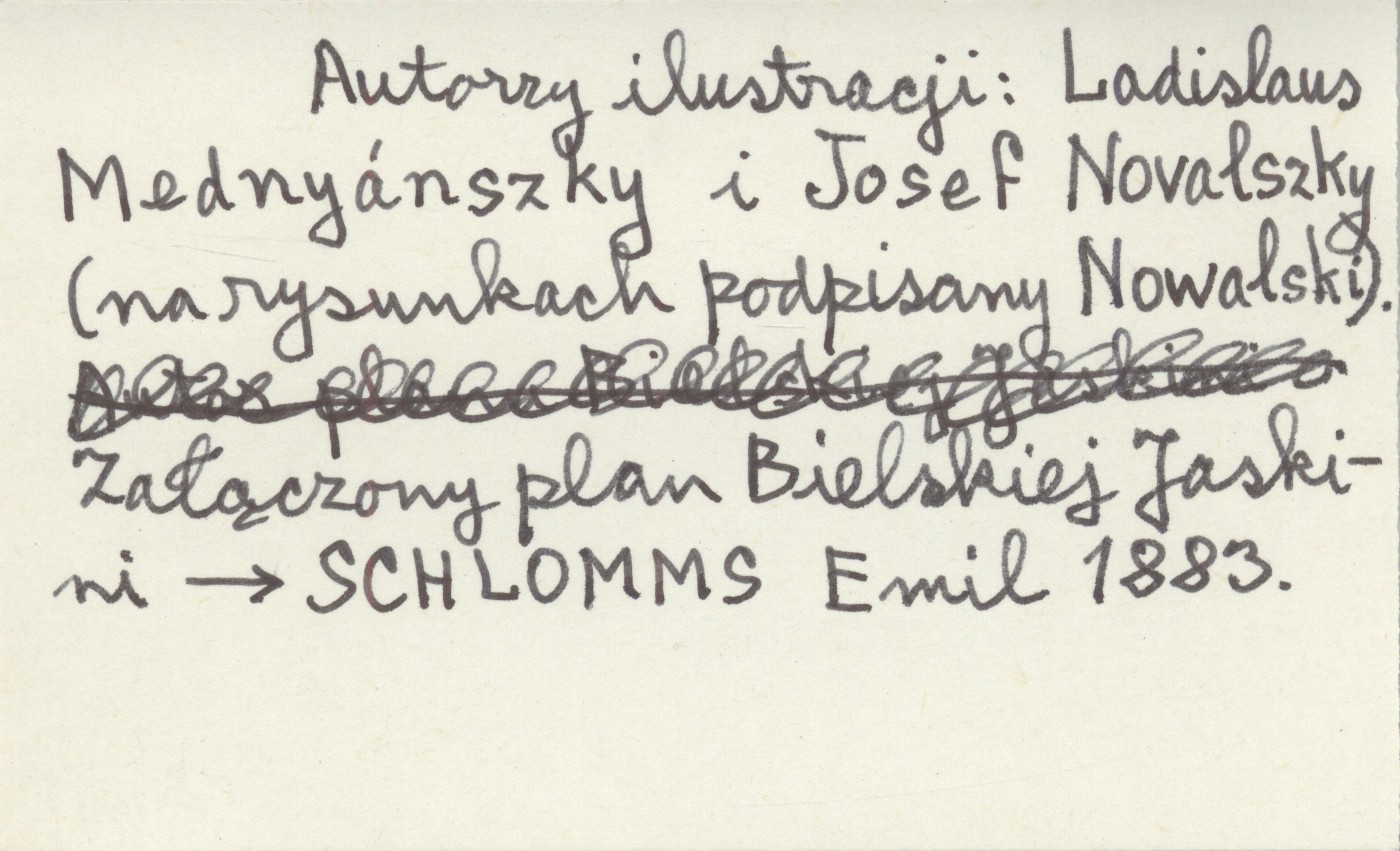 Autorzy ilustracji: Ladislaus
Mednyánszky i Josef Novalszky
(na rysunkach podpisany Nowalski).
Autor planu Bielskiej Jaskini
Załączony plan Bielskiej Jaski-
ni → SCHLOMMS Emil 1883.